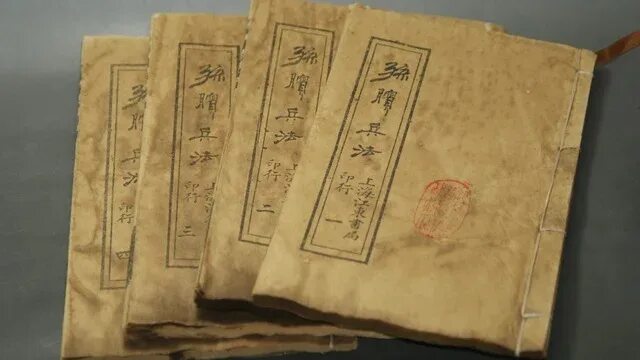 孫臏兵法
上海江東書局
印行 一
孫臏兵法
上海江
印行 二
孫臏兵法
上海江
印行 三
孫臏兵法
印行 四